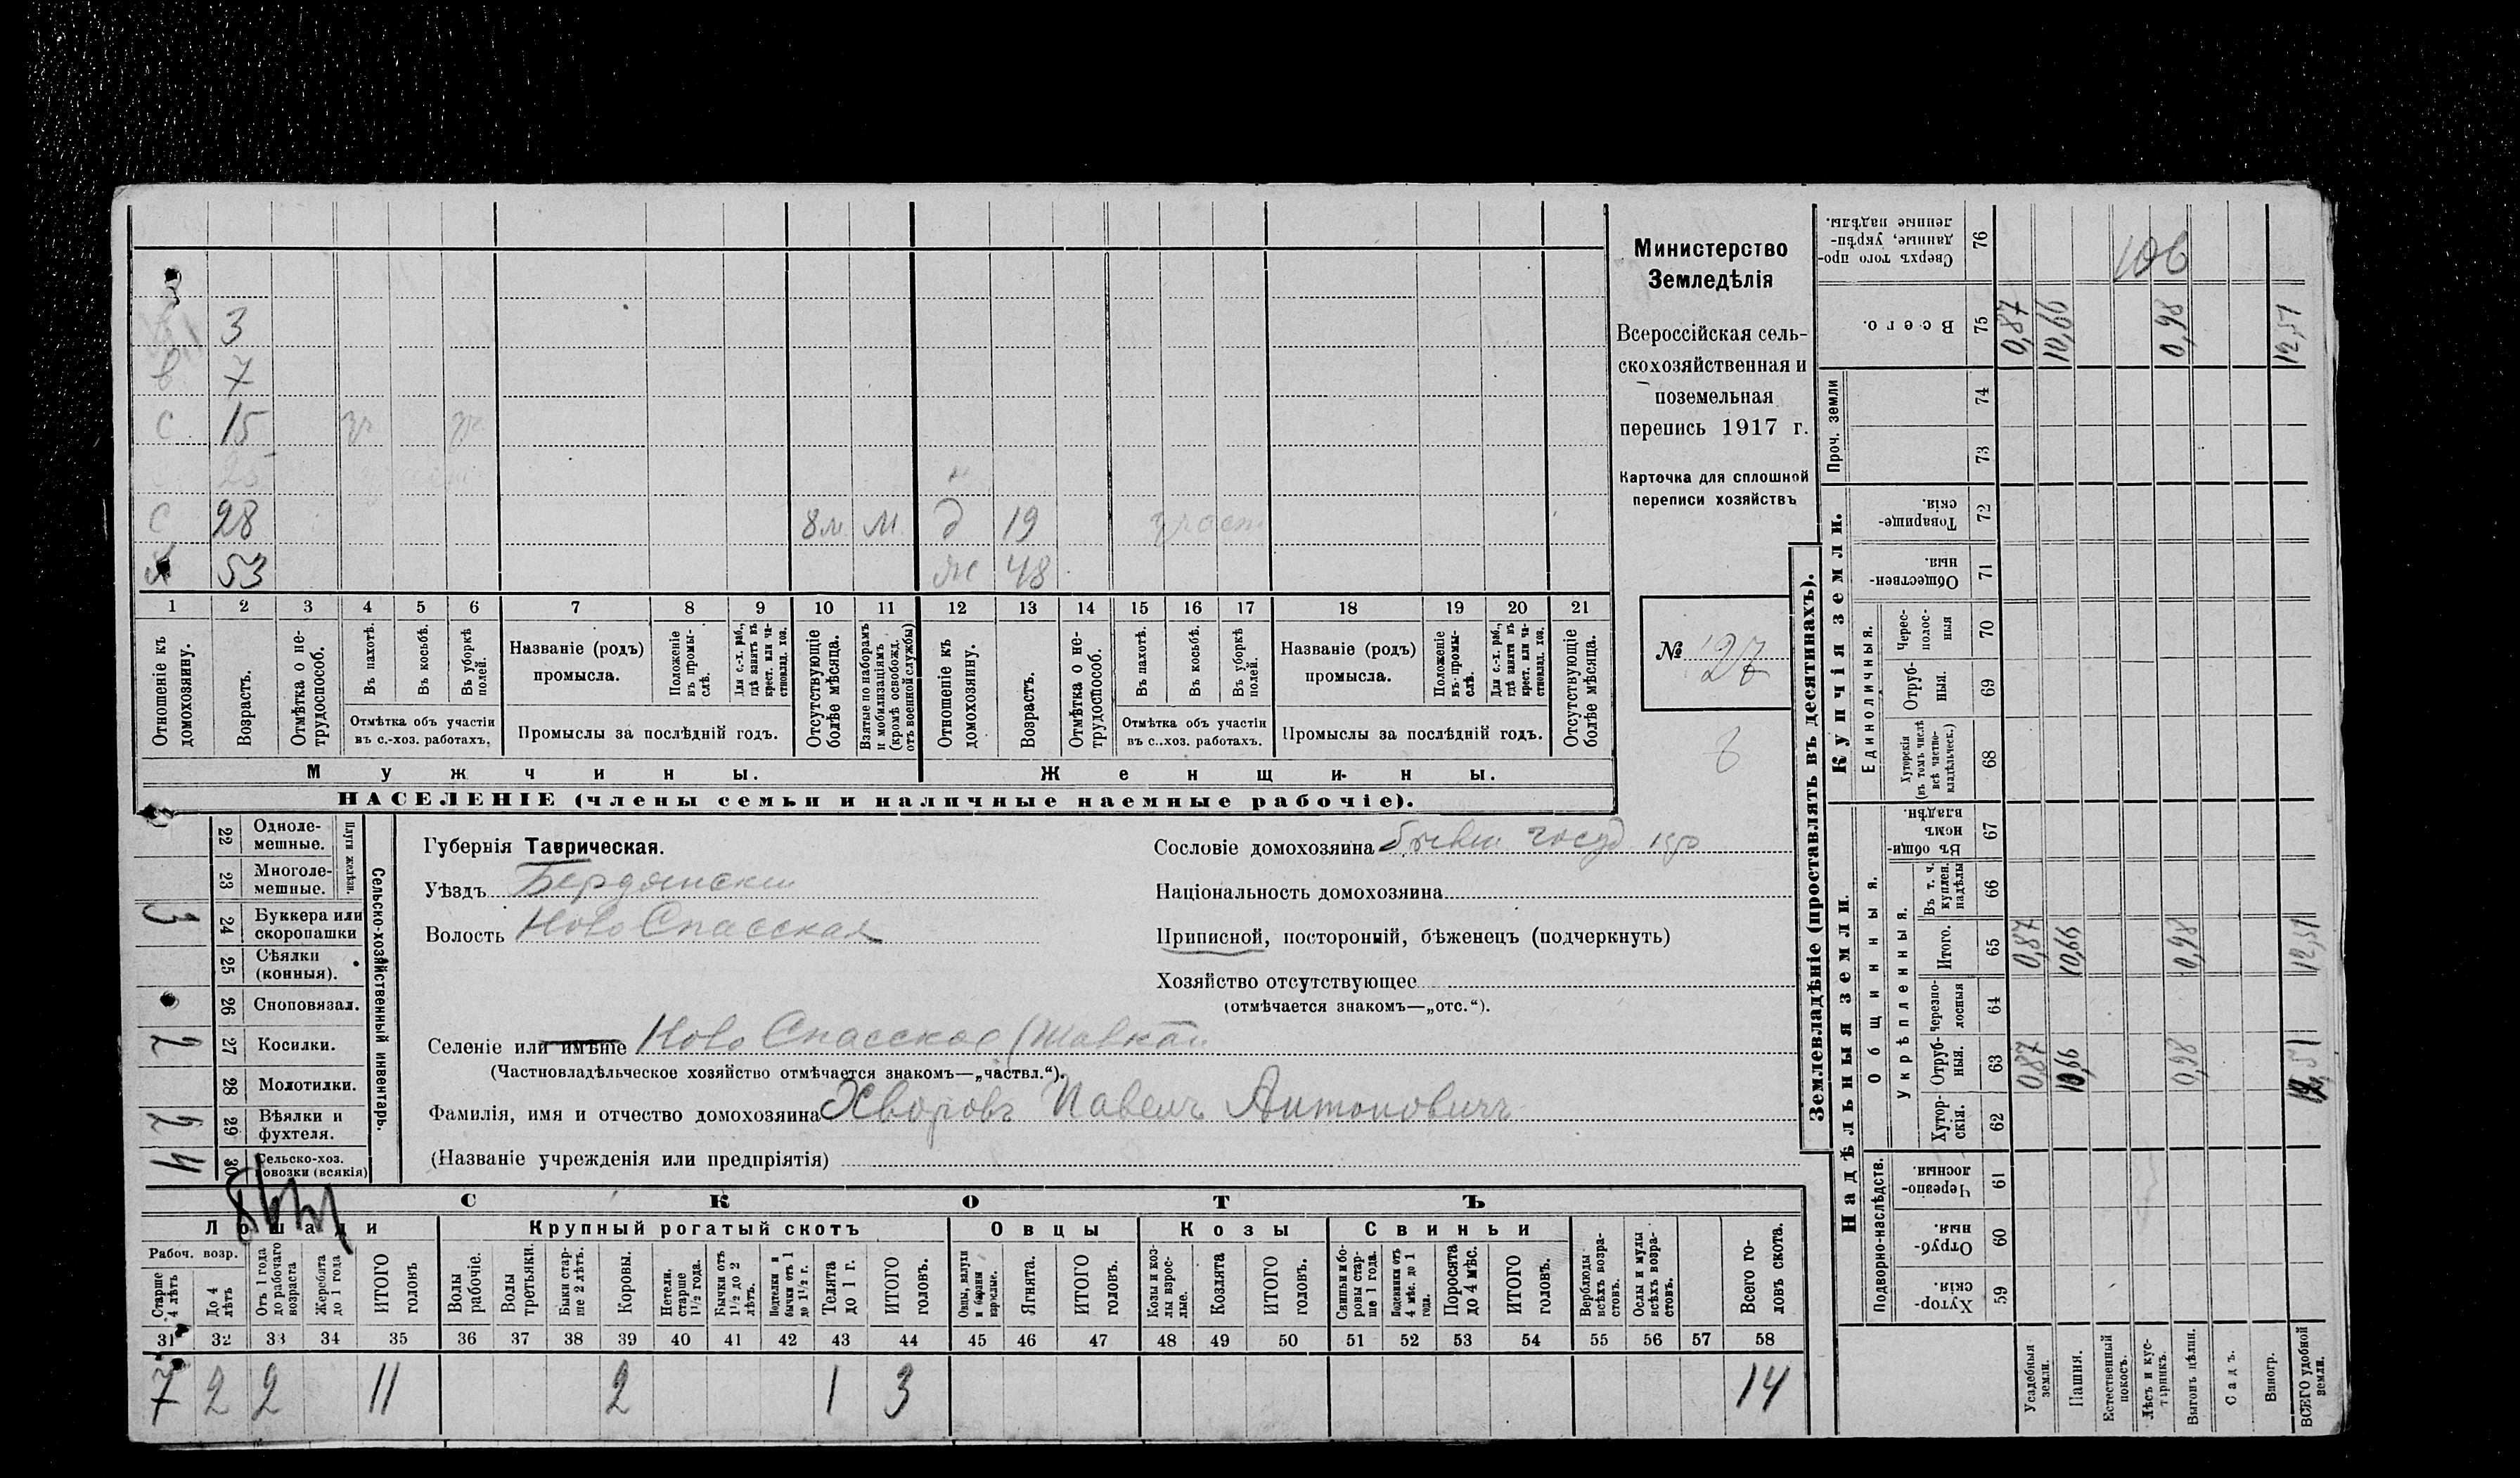 Министерство
Земледѣлія
Всероссійская сель-
скохозяйственная и
поземельная
перепись 1917 г.
Карточка для сплошной
переписи хозяйствъ
№ 27
3
7
с 15
с 28 8м. М. д 19
53 ж 48
1 2 3 4 5 6 7 8 9 10 11 12 13 14 15 16 17 18 19 20 21
Отношеніе къ домохозяину.
Возрастъ.
Отмѣтка о не-трудоспособ.
Въ пахотѣ.
Въ косьбѣ.
Въ уборкѣ полей.
Отмѣтка объ участіи
въ с.-хоз. работахъ.
Названіе (родъ)
промысла.
Положеніе въ промы-слѣ.
Для с.-х. раб., гдѣ занятъ въ крест. или ча-стновлад. хоз.
Промыслы за послѣдній годъ.
Отсутствующіе болѣе мѣсяца.
Взятые по наборамъ и мобилизаціямъ (кромѣ освобожд. отъ военной службы)
Отношеніе къ домохозяину.
Возрастъ.
Отмѣтка о не-трудоспособ.
Въ пахотѣ.
Въ косьбѣ.
Въ уборкѣ полей.
Отмѣтка объ участіи
въ с.-хоз. работахъ.
Названіе (родъ)
промысла.
Положеніе въ промы-слѣ.
Для с.-х. раб., гдѣ занята въ крест. или ча-стновлад. хоз.
Промыслы за послѣдній годъ.
Отсутствующіе болѣе мѣсяца.
Мужчины. Женщины.
НАСЕЛЕНІЕ (члены семьи и наличные наемные рабочіе).
Сельско-хозяйственный инвентарь.
Плуги желѣзн.
22 Одноле-мешные.
23 Многоле-мешные.
3 24 Буккера или скоропашки
25 Сѣялки (конныя).
26 Сноповязал.
2 27 Косилки.
28 Молотилки.
2 29 Вѣялки и фухтеля.
4 30 Сельско-хоз. повозки (всякія)
Губернія Таврическая.
Уѣздъ Бердянски
Волость Ново Спасская
Сословіе домохозяина бывш. госуд кр
Національность домохозяина
Приписной, посторонній, бѣженецъ (подчеркнуть)
Хозяйство отсутствующее
(отмѣчается знакомъ—„отс.“).
Селеніе или имѣніе Ново Спасское
(Частновладѣльческое хозяйство отмѣчается знакомъ—„частвл.“).
Фамилія, имя и отчество домохозяина Хворовъ Павелъ Антоновичъ
(Названіе учрежденія или предпріятія)
СКОТЪ
Лошади Крупный рогатый скотъ Овцы Козы Свиньи
Рабоч. возр.
Старше 4 лѣтъ
До 4 лѣтъ
Отъ 1 года до рабочаго возраста
Жеребята до 1 года
ИТОГО головъ
Волы рабочіе.
Волы третьяки.
Быки стар-ше 2 лѣтъ.
Коровы.
Нетели, старше 1½ года.
Бычки отъ 1½ до 2 лѣтъ.
Подтелки и бычки отъ 1 до 1½ г.
Телята до 1 г.
ИТОГО головъ.
Овцы, валухи и бараны взрослые.
Ягнята.
ИТОГО головъ.
Козы и коз-лы взрос-лые.
Козлята
ИТОГО головъ.
Свиньи и бо-ровы стар-ше 1 года.
Подсвинки отъ 4 мѣс. до 1 года.
Поросята до 4 мѣс.
ИТОГО головъ.
Верблюды всѣхъ возра-стовъ.
Ослы и мулы всѣхъ возра-стовъ.
Всего го-ловъ скота.
31 32 33 34 35 36 37 38 39 40 41 42 43 44 45 46 47 48 49 50 51 52 53 54 55 56 57 58
7 2 2 11 2 1 3 14
Землевладѣніе (проставлять въ десятинахъ).
Надѣльныя земли. Купчія земли. Проч. земли
Подворно-наслѣдств.
Общинныя.
Укрѣпленныя.
Единоличныя.
Сверхъ того про-данные, укрѣп-ленные надѣлы. 76 106
Всего. 75 0,87 10,66 0,98 12,51
74
73
Товарище-скія. 72
Обществен-ныя 71
Черес-полос-ныя 70
Отруб-ныя. 69
Хуторскія (въ томъ числѣ всѣ частно-владѣльческ.) 68
Въ общи-номъ владѣн. 67
Въ т. ч. куплен. надѣлы 66
Итого. 65 0,87 10,66 0,98 12,51
Черезпо-лосныя 64
Отруб-ныя. 63 0,87 10,66 0,98 12,51
Хутор-скія. 62
Черезпо-лосныя. 61
Отруб-ныя. 60
Хутор-скія. 59
Усадебныя земли.
Пашня.
Естественный покосъ.
Лѣсъ и кус-тарникъ.
Выгонъ цѣлин.
Садъ.
Виногр.
ВСЕГО удобной земли.